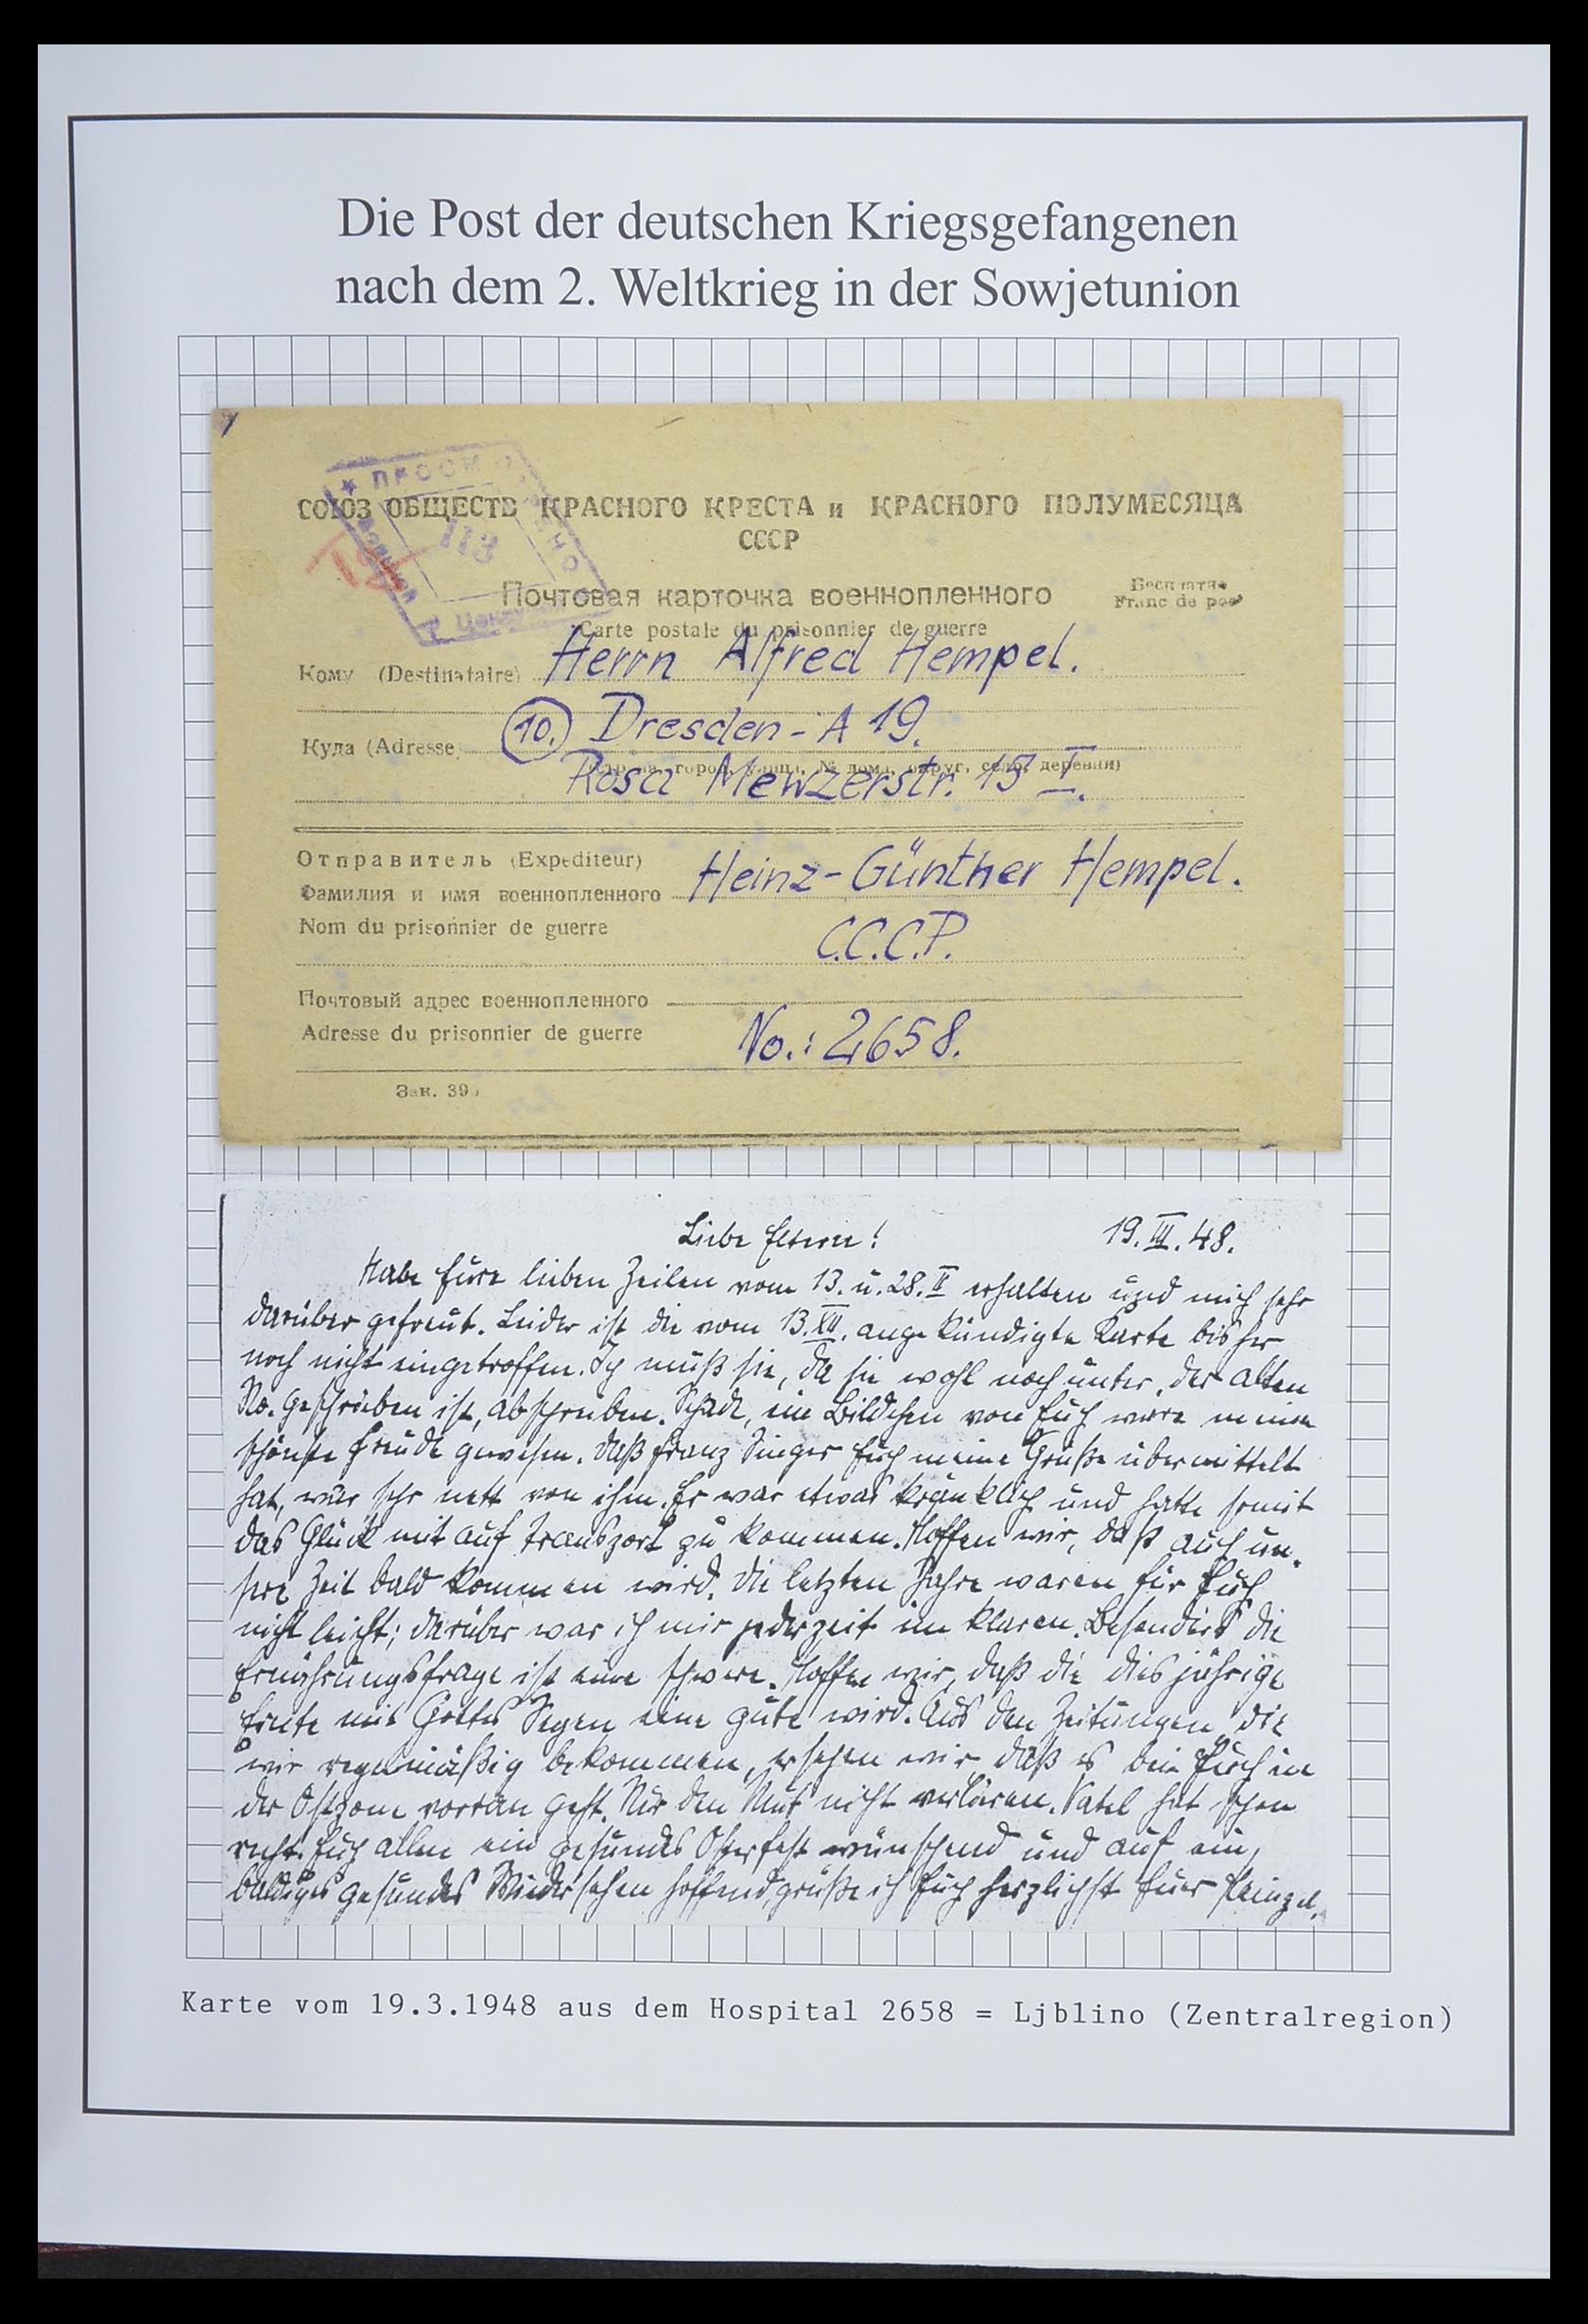 Die Post der deutschen Kriegsgefangenen
nach dem 2. Weltkrieg in der Sowjetunion
ПРОСМОТРЕНО
113
СОЮЗ ОБЩЕСТВ КРАСНОГО КРЕСТА и КРАСНОГО ПОЛУМЕСЯЦА
СССР
Почтовая карточка военнопленного
Бесплатно
Carte postale du prisonnier de guerre
Franc de port
Кому (Destinataire) Herrn Alfred Hempel.
Куда (Adresse) 10. Dresden-A 19.
город, улица, № дома, округ, село, деревня)
Rosa Menzerstr. 15 I.
Отправитель (Expéditeur)
Фамилия и имя военнопленного Heinz-Günther Hempel.
Nom du prisonnier de guerre
C.C.C.P.
Почтовый адрес военнопленного
Adresse du prisonnier de guerre No.: 2658.
Зак. 395
Liebe Eltern! 19.III.48.
Habe Eure lieben Zeilen vom 13. u. 28.II erhalten und mich sehr
darüber gefreut. Leider ist die vom 13.XII. angekündigte Karte bisher
noch nicht eingetroffen. Ich muß sie, da sie wohl noch unter der alten
No. geschrieben ist, abschreiben. Schade, ein Bildchen von Euch wäre meine
schönste Freude gewesen. Daß Franz Singer Euch meine Grüße übermittelt
hat, war sehr nett von ihm. Er war etwas kränklich und hatte somit
das Glück mit auf Transport zu kommen. Hoffen wir, daß auch un-
sere Zeit bald kommen wird. Die letzten Jahre waren für Euch
nicht leicht; darüber war ich mir jederzeit im klaren. Besonders die
Ernährungsfrage ist eine schwere. Hoffen wir, daß die diesjährige
Ernte mit Gottes Segen eine gute wird. Aus den Zeitungen, die
wir regelmäßig bekommen, ersehen wir, daß es bei Euch in
der Ostzone vorran geht. Nur den Mut nicht verlieren. Vatel hat schon
recht. Euch allen ein gesundes Osterfest wünschend und auf ein,
baldiges gesundes Wiedersehen hoffend, grüße ich Euch herzlichst Euer Heinzel.
Karte vom 19.3.1948 aus dem Hospital 2658 = Ljblino (Zentralregion)